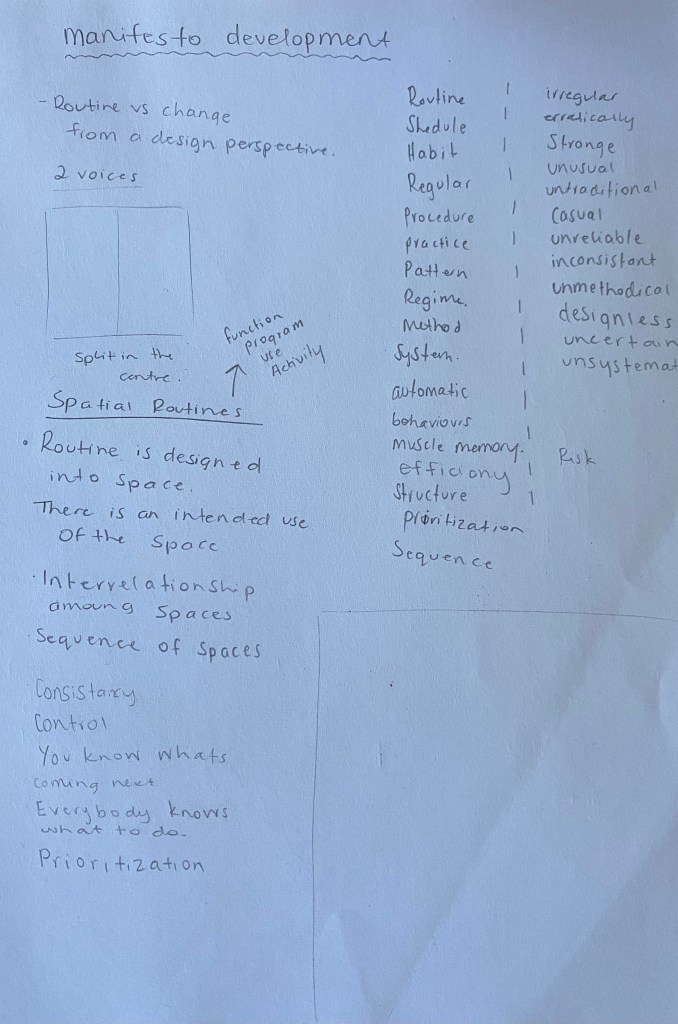 manifesto development
- Routine vs change
from a design perspective.
2 voices
Split in the
centre.
function
program
use
Activity
Spatial Routines
• Routine is designed
into space.
There is an intended use
Of the Space
• Interrelationship
amoung Spaces
• Sequence of Spaces
Consistancy
Control
You know whats
coming next
Everybody knows
what to do.
Prioritization
Routine
Shedule
Habit
Regular
Procedure
practice
Pattern
Regime.
Method
System.
automatic
behaviours
muscle memory.
efficiony
Structure
prioritization
Sequence
irregular
erratically
Strange
unusual
untraditional
Casual
unreliable
inconsistant
unmethodical
designless
uncertain
unsystemat
Risk